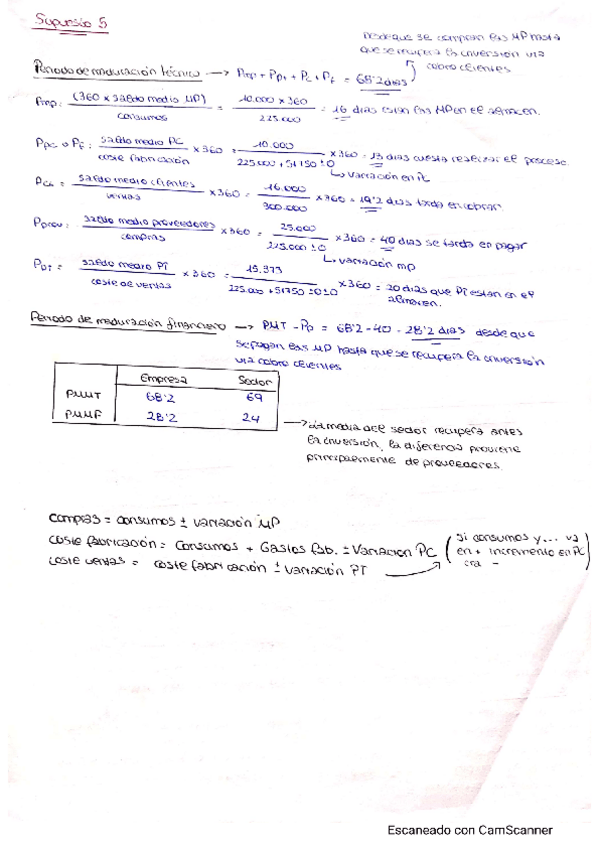 Supuesto 5
Desde que se compran las MP hasta
que se recupera la inversión via
cobro clientes
Periodo de maduración técnico → Pmp + Ppt + Pc + Pf = 68'2 dias
Pmp: (360 x saldo medio MP) / consumos = 10.000 x 360 / 225.000 = 16 dias estan las MP en el almacen.
Ppc o Pf: saldo medio PC / coste fabricación x 360 = 10.000 / 225.000 + 51750 ± 0 x 360 = 13 dias cuesta realizar el proceso.
↳ variación en PC
Pcl = saldo medio clientes / ventas x 360 = 16.000 / 300.000 x 360 = 19'2 dias tarda en cobrar.
Pprov: saldo medio proveedores / compras x 360 = 25.000 / 225.000 ± 0 x 360 = 40 dias se tarda en pagar
↳ variación mp
Ppt = saldo medio PT / coste de ventas x 360 = 15.373 / 225.000 + 51750 ± 0 ± 0 x 360 = 20 dias que PT estan en el
almacen.
Periodo de maduración financiero → PMT - Pp = 68'2 - 40 = 28'2 dias desde que
se pagan las MP hasta que se recupera la inversión
via cobro clientes
Empresa Sector
PMMT 68'2 69
PMMF 28'2 24
→ La media del sector recupera antes
la inversión, la diferencia proviene
principalmente de proveedores.
compras = consumos ± variación MP
coste fabricación = Consumos + Gastos fab. ± Variacion PC
(si consumos y... va
en + incremento en PC
era -
coste ventas = coste fabricación ± variación PT
Escaneado con CamScanner